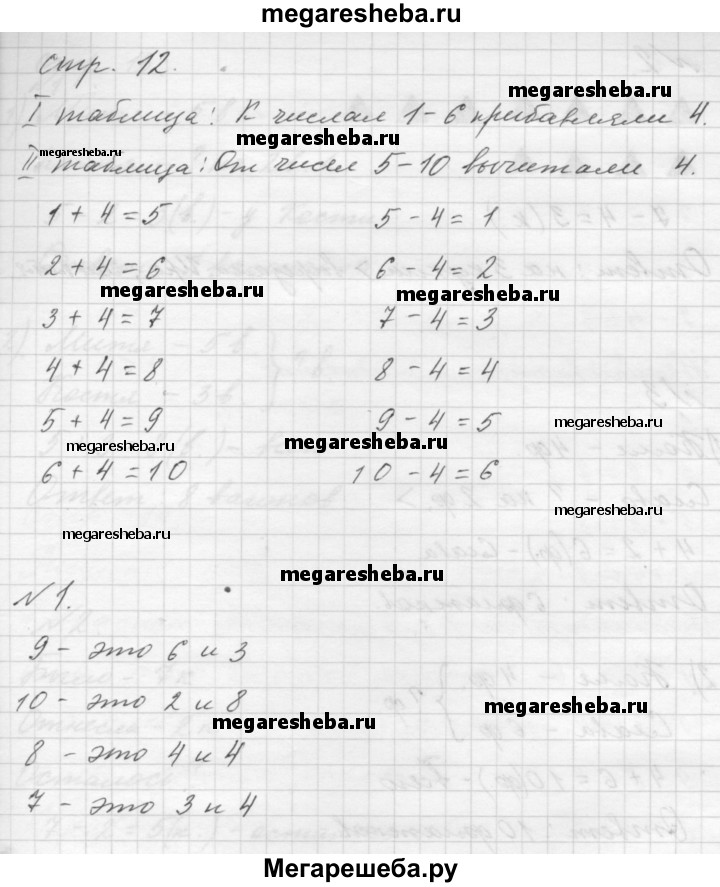 megaresheba.ru
стр. 12.
megaresheba.ru
I таблица: К числам 1-6 прибавляли 4.
megaresheba.ru
megaresheba.ru
II таблица: От чисел 5-10 вычитали 4.
1 + 4 = 5 5 - 4 = 1
2 + 4 = 6 6 - 4 = 2
megaresheba.ru megaresheba.ru
3 + 4 = 7 7 - 4 = 3
4 + 4 = 8 8 - 4 = 4
5 + 4 = 9 9 - 4 = 5 megaresheba.ru
megaresheba.ru megaresheba.ru
6 + 4 = 10 10 - 4 = 6
megaresheba.ru
megaresheba.ru
megaresheba.ru
№1.
9 - это 6 и 3
10 - это 2 и 8 megaresheba.ru
megaresheba.ru
8 - это 4 и 4
7 - это 3 и 4
Мегарешеба.ру